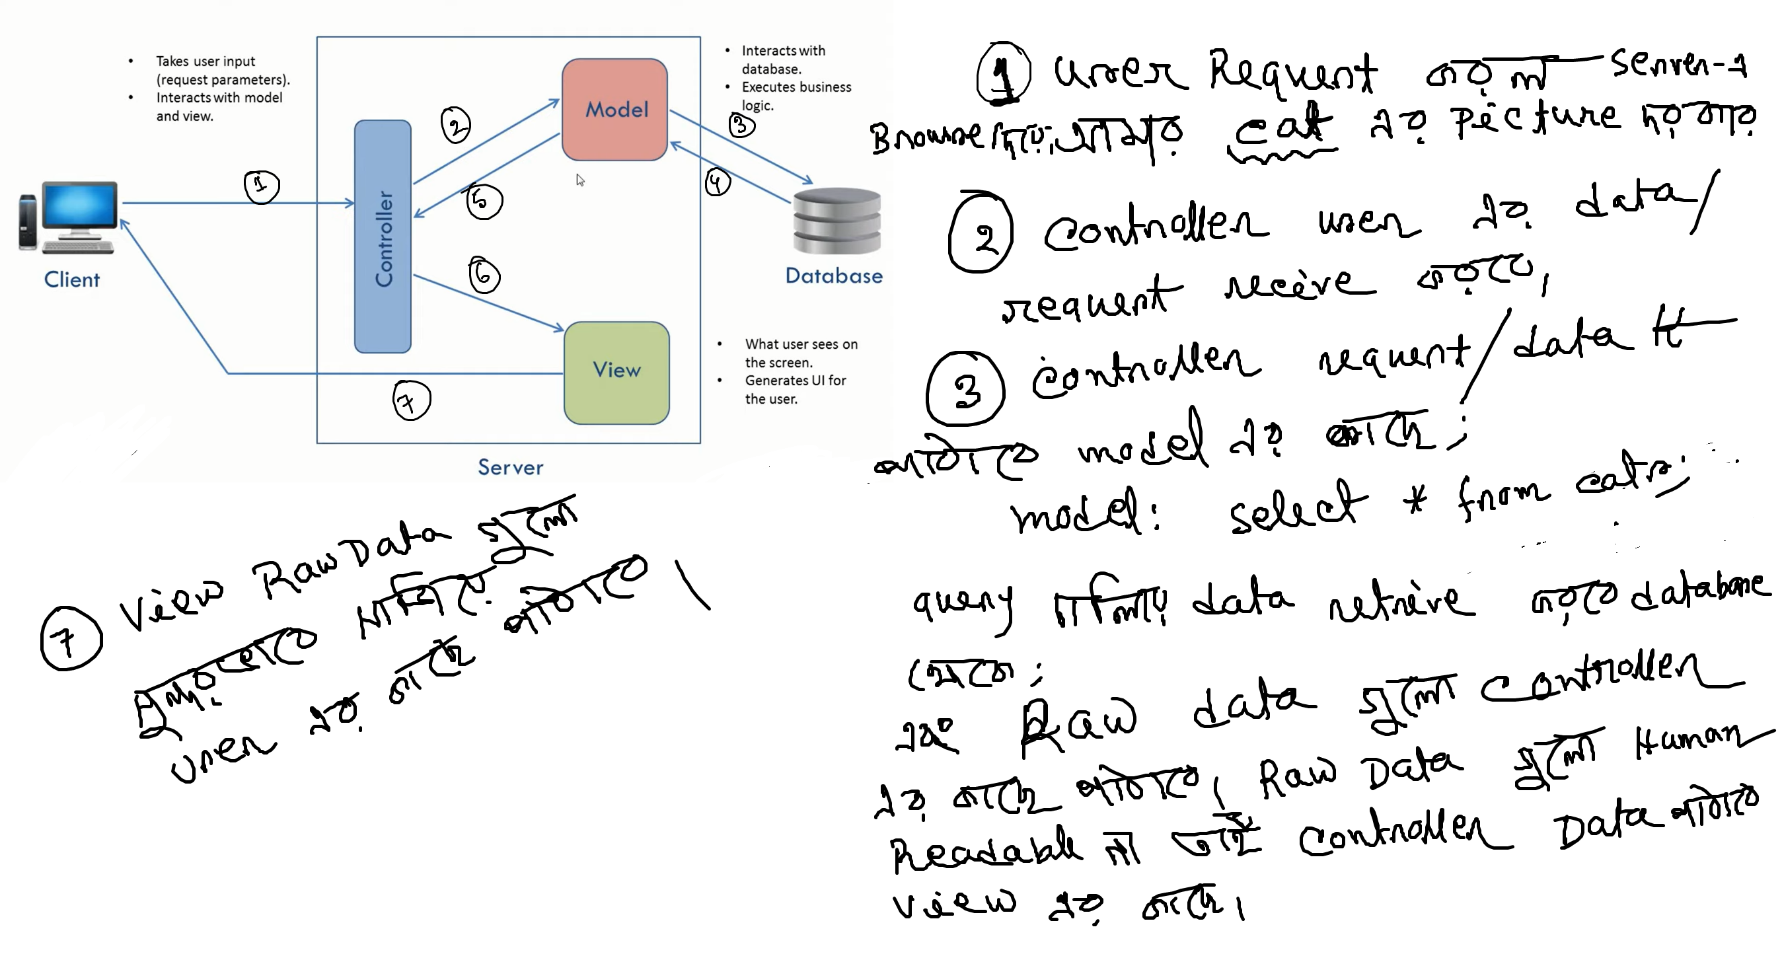 • Takes user input
(request parameters).
• Interacts with model
and view.
• Interacts with
database.
• Executes business
logic.
Model
Controller
Client
Database
View
• What user sees on
the screen.
• Generates UI for
the user.
Server
1
2
3
4
5
6
7
1 User Request করলো server-এ
Browse আমার cat এর picture দরকার
2 controller user এর data/
request recive করবে,
3 controller request/data টি
পাঠাবে model এর কাছে;
model: select * from cats;
query চালিয়ে data retrive করবে database
থেকে;
এবং Raw data গুলো controller
এর কাছে পাঠাবে, Raw Data গুলো Human
Readable না তাই controller Data পাঠাবে
view এর কাছে,
7 View Raw Data গুলো
সুন্দরভাবে সাজিয়ে
user এর কাছে পাঠাবে।